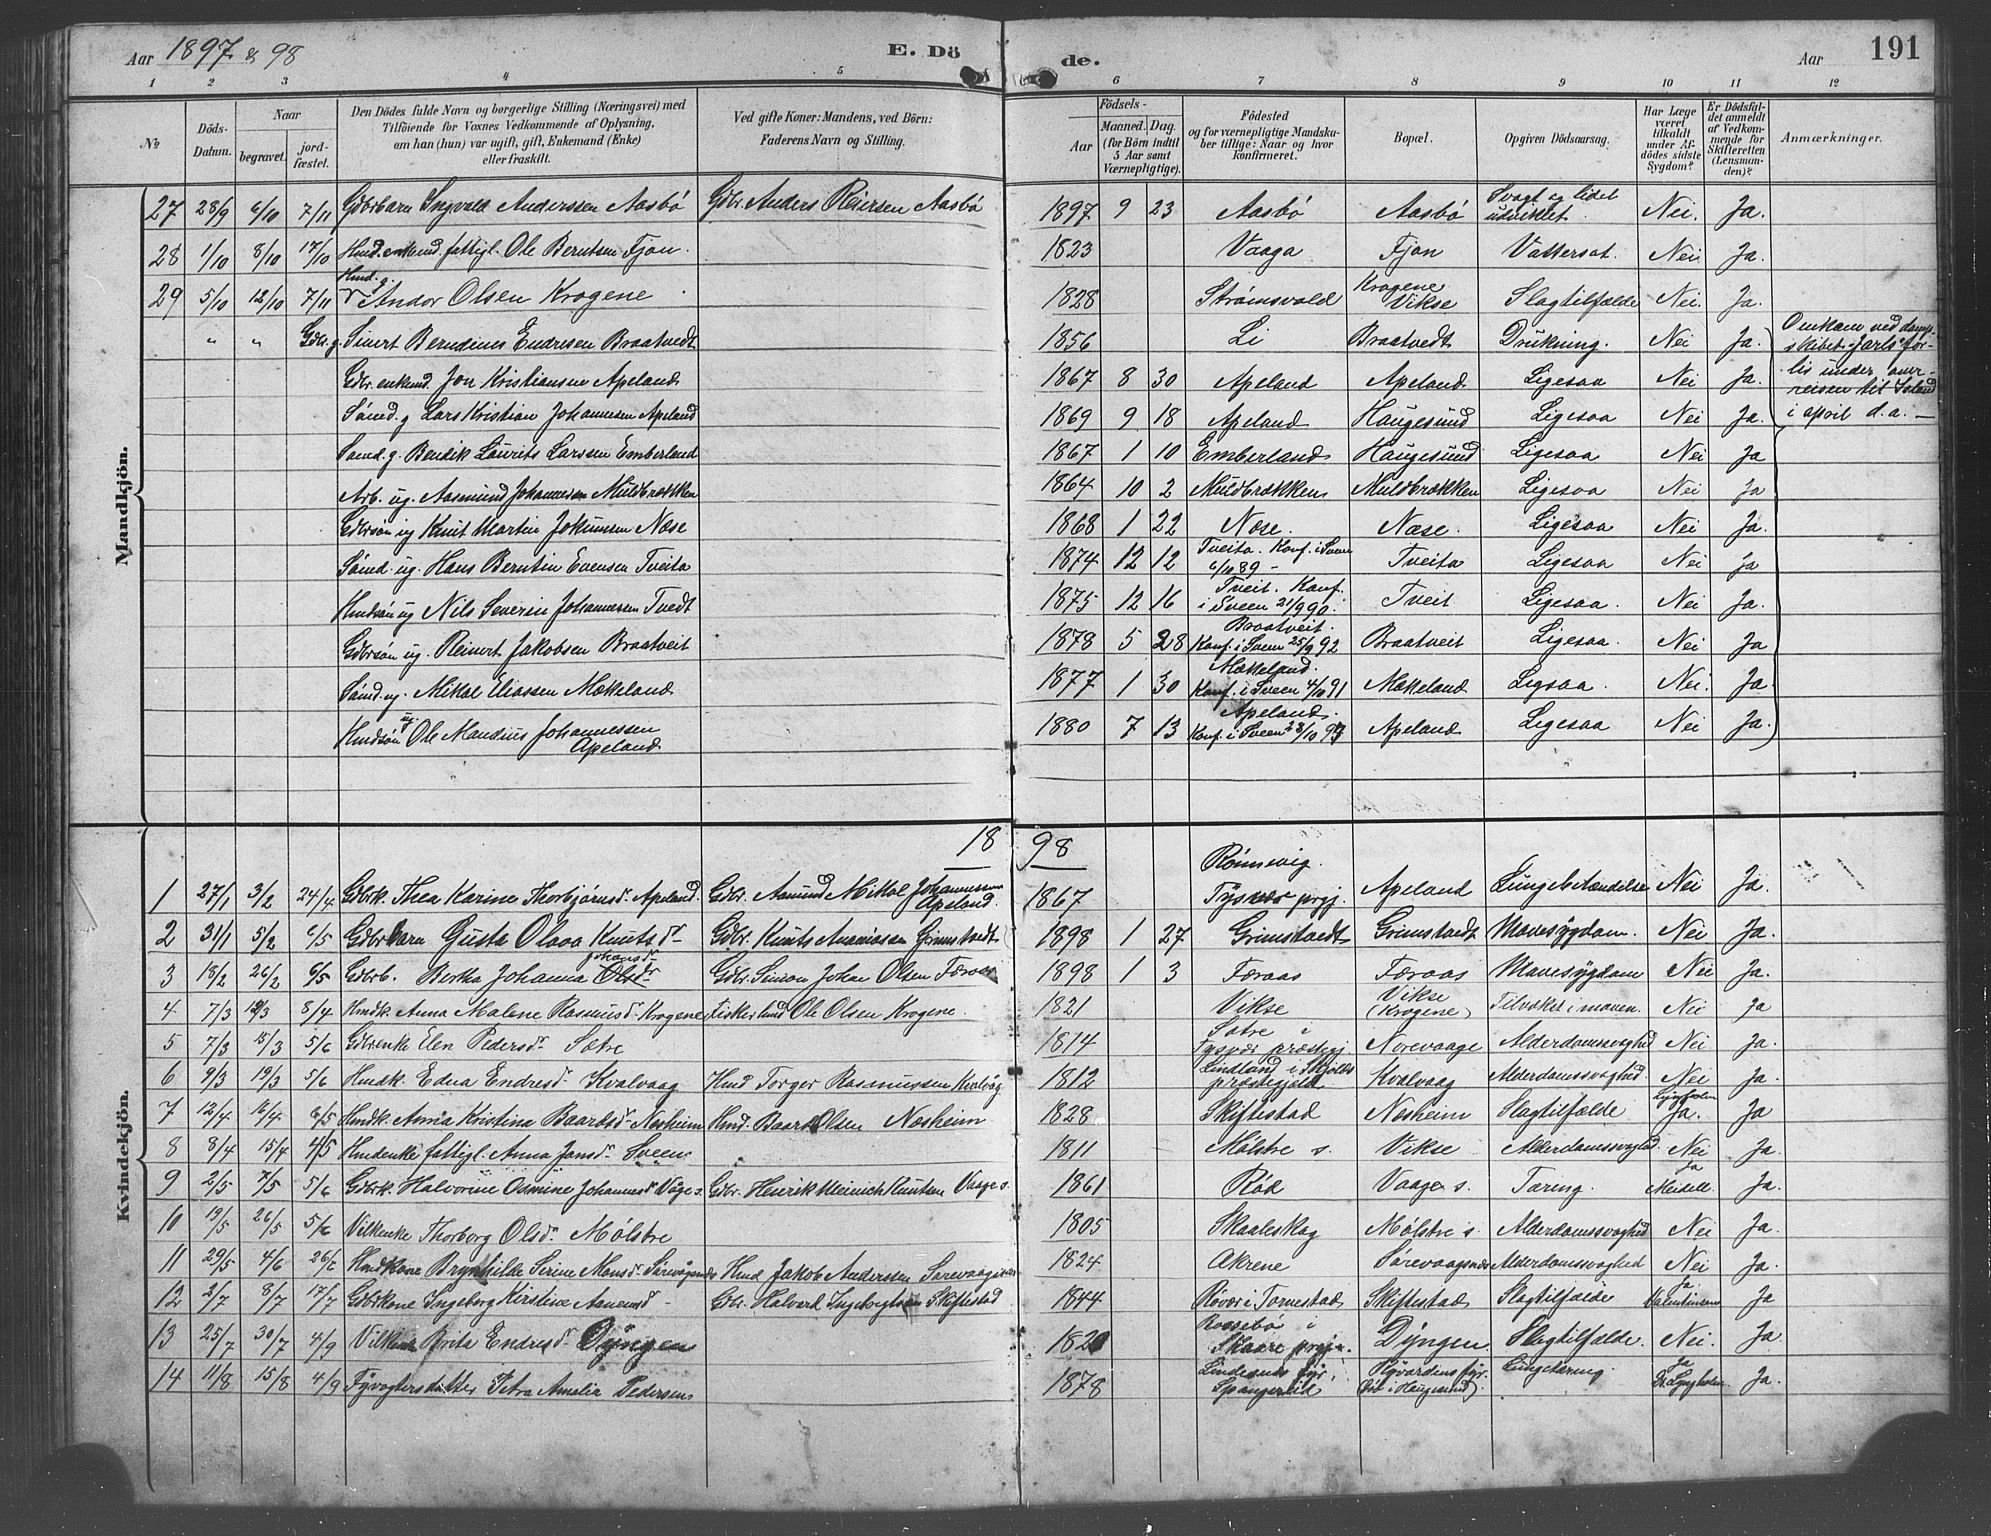 Aar 1897 & 98 E. Dö
de. Aar 191
1 2 3 4 5 6 7 8 9 10 11 12
No Döds-Datum. Naar begravet. jordfæstet. Den Dödes fulde Navn og borgerlige Stilling (Næringsvei) med Tilföiende for Voxnes Vedkommende af Oplysning, om han (hun) var ugift, gift, Enkemand (Enke) eller fraskilt. Ved gifte Koner: Mandens, ved Börn: Faderens Navn og Stilling. Födsels- Aar Maaned. Dag. (for Börn indtil 5 Aar samt Værnepligtige). Födested og for værnepligtige Mandskaber tillige: Naar og hvor konfirmeret. Bopæl. Opgiven Dödsaarsag. Har Læge været tilkaldt under Afdödes sidste Sygdom? Er Dödsfaldet anmeldt af Vedkommende for Skifteretten (Lensmanden)? Anmærkninger.
Mandkjön.
27 28/9 6/10 7/11 Gdbrbarn Ingvald Anderssen Aasbö Gdbr. Anders Reiersen Aasbö 1897 9 23 Aasbö Aasbö Svagt og lidet udviklet Nei. Ja.
28 1/10 8/10 17/10 Hmd. enkemd. fattigl. Ole Berntsen Fjon. 1823 Vaaga Fjon Vattersot. Nei Ja.
29 5/10 12/10 7/11 Hmd. g. Andor Olsen Krogene 1828 Strömsvold Krogene Vikse Slagtilfælde Nei. Ja.
" " Gdbr. g. Sivert Berndinus Endresen Braatvedt 1856 Li Braatvedt Drukning. Nei Ja. Omkom ved dampskibet "Jarls" forlis under overreisen til Island i april d.a. —
Gdbr. enkemd. Jon Kristiansen Apeland 1867 8 30 Apeland Apeland Ligesaa Nei Ja.
Sömd. g. Lars Kristian Johannesen Apeland 1869 9 18 Apeland Haugesund Ligesaa Nei Ja.
Sömd. g. Bendik Laurits Larssen Emberland 1867 1 10 Emberland Haugesund Ligesaa Nei Ja
Arb. ug. Aasmund Johannesen Muldbrækken 1864 10 2 Muldbrækken Muldbrækken Ligesaa Nei Ja
Gdbrsön ug Knut Martin Jokumsen Næse 1868 1 22 Næse. Næse. Ligesaa Nei Ja.
Sömd. ug. Hans Berntin Evensen Tveita 1874 12 12 Tveita. Konf. i Sveen 6/10 89 - Tveita Ligesaa Nei Ja
Hmdsön ug Nils Severin Johannessen Tvedt 1875 12 16 Tveit. Konf. i Sveen 21/9 90. Tveit Ligesaa. Nei Ja.
Gdbrsön ug. Reinert Jakobsen Braatveit 1878 5 28 Braatveit. Konf. i Sveen 25/9 92 Braatveit Ligesaa. Nei Ja
Sömd. ug. Mikal Eliassen Mækeland 1877 1 30 Mækeland. Konf. i Sveen 4/10 91 Mækeland Ligsaa. Nei. Ja.
Hmdsön ug. Ole Mandius Johannessen Apeland 1880 7 13 Apeland. Konf. i Sveen Apeland Ligesaa Nei Ja.
Kvindekjön.
1898
1 27/1 3/2 24/4 Gdbrk. Thea Karine Thorbjörnsd. Apeland. Gdbr. Aamund Mikal Johannessen Apeland. 1867 Rönnevig. Tysvær prgj. Apeland Lungebetændelse Nei Ja.
2 31/1 5/2 6/5 Gdbrbarn Gusta Olava Knutsdr Gdbr. Knuts Ananiasen Grimstvedt 1898 1 27 Grimstvedt Grimstvedt Mavesygdom. Nei Ja.
3 18/2 26/2 6/5 Gdbrb. Bertha Johanna Johansd. Gdbr. Simon Johan Olsen Færaas 1898 1 3 Færaas Færaas Mavesygdom Nei Ja.
4 7/3 12/3 8/4 Hmdk. Anna Malene Rasmusd. Krogene Fisker hmd Ole Olsen Krogene. 1821 Vikse Vikse (Krogene) Tilvækst i maven. Nei Ja
5 7/3 15/3 5/6 Gdbrenke Elen Pedersdr. Sætre 1814 Sætre i Tysvær præstegj. Norevaage Alderdomssvaghed Nei Ja.
6 9/3 19/3 5/6 Hmdk. Edna Endresdr. Kvalvaag Hmd Torger Rasmussen Kvalvåg 1812 Lindland i Skjolds præstegjeld Kvalvaag Alderdomssvaghed. Nei Ja.
7 12/4 16/4 6/5 Hmdk. Anna Kristina Baardsdr. Nesheim Hmd. Baard Olsen Næsheim 1828 Skiftestad Nesheim Slagtilfælde Lyngholm Ja. Ja
8 8/4 15/4 4/5 Hmdenke fattigl. Anna Jansdr. Sveen. 1811 Mölstre s. Vikse Alderdomssvaghd. Nei Ja.
9 2/5 7/5 5/6 Gdbrk. Halvorine Osmine Johannesdr Våge s. Gdbr. Henrik Meinich Knutsen Vaage s. 1861 Röd Vaage s. Tæring. Ja Meidell. Ja.
10 19/5 26/5 5/6 Vilkenke Thorborg Olsdr. Mölstre 1805 Skaaleskag Mölstre s. Alderdomssvaghed Nei Ja.
11 29/5 4/6 26/6 Hmdkone Brynhilde Serine Monsdr. Sörevågsnæs Hmd Jakob Anderssen Sorevaagsnes 1824 Akrene Sörevaagsnæs Alderdomssvaghed Nei Ja.
12 2/7 8/7 17/7 Gdbrkone Ingeborg Kirstine Aanensd - Gdbr. Halvard Ingebrigtsen Skiftestad 1844 Rövær i Torvestad Skiftestad Slagtilfælde Ja Valentinsen Ja
13 25/7 30/7 4/9 Vilkenk Brita Endresdr. Dyngen 1820 Rossebö i Skaare prgj. Dyngen Slagtilfælde. Nei. Ja
14 11/8 15/8 4/9 Fyrvogtersdatter Petra Amalia Pedersen 1878 Lindesnes fyr, Spangereid Ryvardens fyr. (Död i Haugesund) Lungetæring. Ja Dr. Lyngholm Ja.